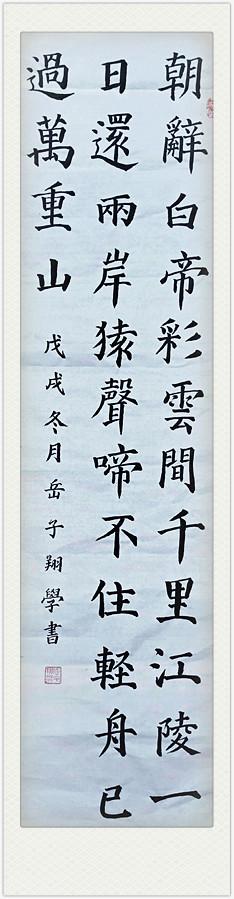 朝辭白帝彩雲間千里江陵一
日還兩岸猿聲啼不住軽舟已
過萬重山
戊戌冬月岳子翔學書